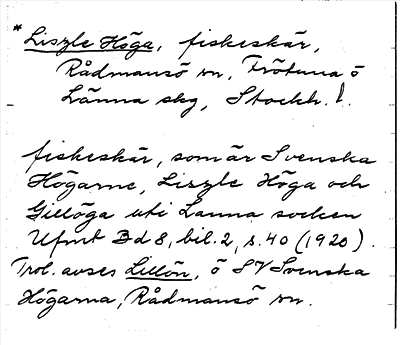 *Liszle Höga, fiskeskär,
Rådmansö sn, Frötuna o
Länna skg, Stockh. l.
fiskeskär, som är Svenska
Högarne, Liszle Höga och
Gillöga uti Lanna socken
Ufmt Bd 8, bil. 2, s. 40 (1920).
Trol. avses Lillön, ö SV Svenska
Högarna, Rådmansö sn.